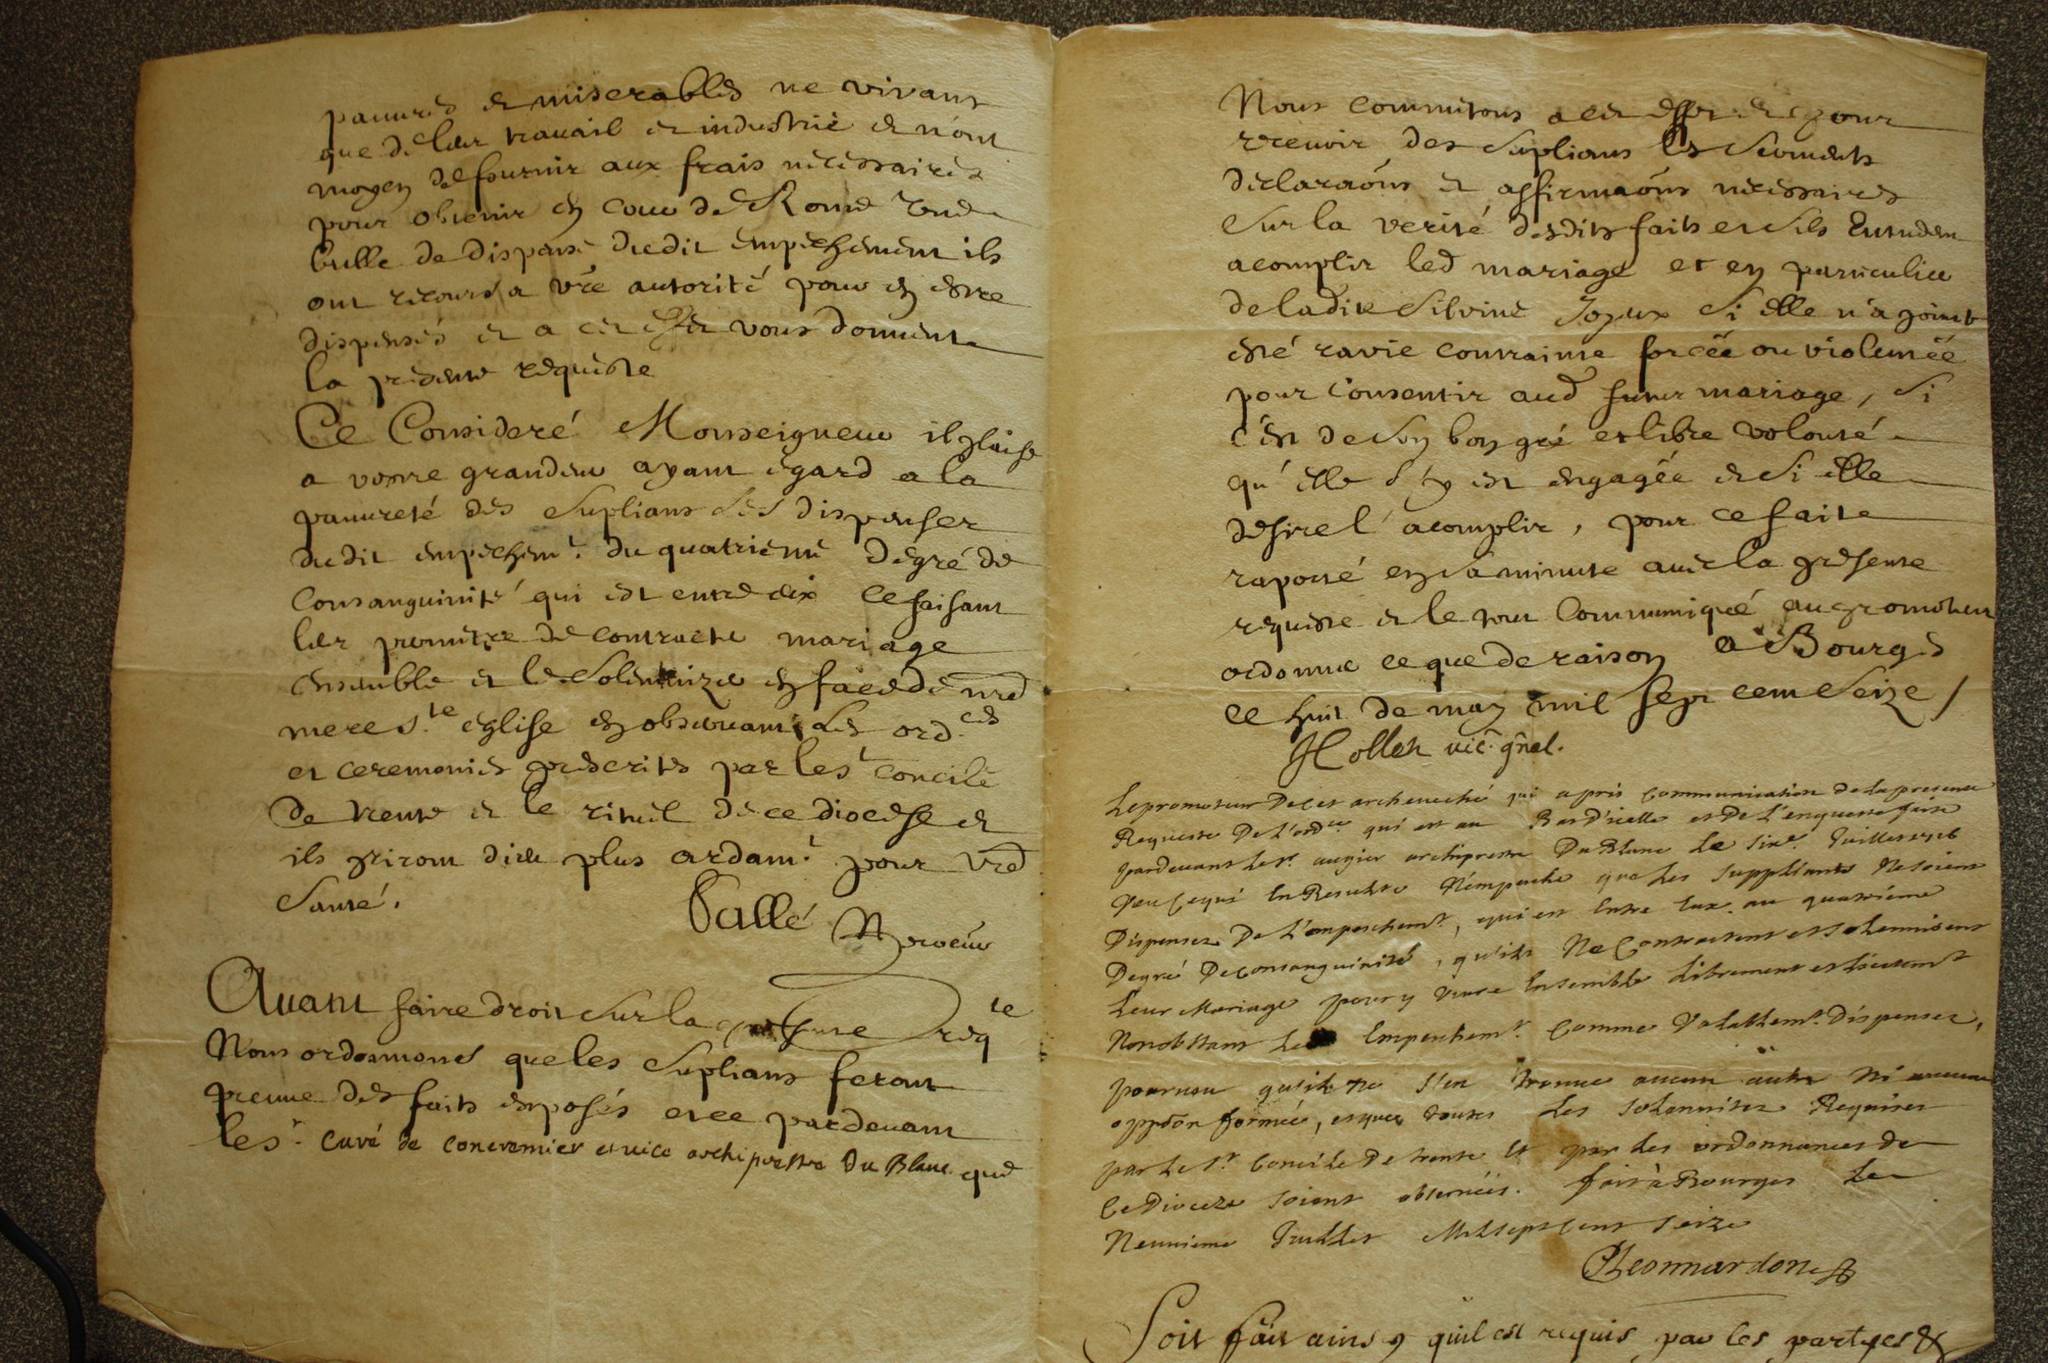 pauures et miserables ne vivant
que de leur trauail et industrie et n'ont
moyen de fournir aux frais necessaires
pour obtenir en cour de Rome une
bulle de dispense dudit empeschement ils
ont recours a vre autorité pour en estre
dispensés et a cet effet vous donnent
la presente requeste
Ce Consideré Monseigneur il plaise
a vostre grandeur ayant égard a la
pauureté des Suplians les dispenser
dudit empeschemt. du quatrieme dégré de
Consanguinité qui est entre eux Ce faisant
leur promettre de contracter mariage
ensemble et le Solemnizer en face de nre
mere Ste église en obseruant les ordces
et ceremonies prescrites par le st concile
de trente et le rituel de ce diocese et
ils priront dieu plus ardamt. pour vre
Santé.
Pallé Proceur
Auant faire droit sur la presente Reqte
Nous ordonnons que les Suplians feront
preuue des faits exposés en ce pardeuant
le sr. Curé de concremier et vice archiprestre du Blanc que
Nous Commetons a cet effet et pour
receuoir des Suplians les Serments
declaraons et affirmaons necessaires
Sur la verité desdits faits et s'ils Entendent
acomplir led mariage et en particulier
de ladite Silvine Joyeux Si elle n'a point
esté ravie contrainte forcée ou violentée
pour Consentir aud futur mariage, Si
c'est de Son bon gré et libre volonté
qu'elle s'y est engagée et Si elle
desire l'acomplir, pour ce fait
raporté en Sa minute auec la presente
requeste et le tout Communiqué au promoteur
ordonner ce que de raison a Bourges
ce huit de may mil sept cent Seize /
Hollen vic. gnal.
Le promoteur De cet archeueché qui a pris Communication de la presente
Requeste De L'ordce. qui est au Bas d'icelles et De L'enqueste faite
pardeuant le sr. augier archiprestre Du Blanc Le sixe. Juillet 1716
Veu Ce qui En Resulte N'empesche que Les Suppliants Ne soient
Dispensez De L'empeschemt., qui est Entre Eux au quatrieme
Degré De Consanguinité, qu'ils Ne Contractent et Solemnisent
Leur Mariage pour y viure Ensemble Librement et Licitemt
Nonobstant Led Empeschemt. Comme Valablemt. Dispensez,
pourueu qu'il ne s'en trouue aucun autre Ni aucune
oppôon formée, et que toutes Les Solemnitez Requises
par Le St. Concile De trente Et par Les ordonnances de
Ce Dioceze soient obseruées. fait à Bourges Le
Neuuieme Juillet Mil sept Cent seize
Leonnardon
Soit fait ainsy quil est requis par les partyes &